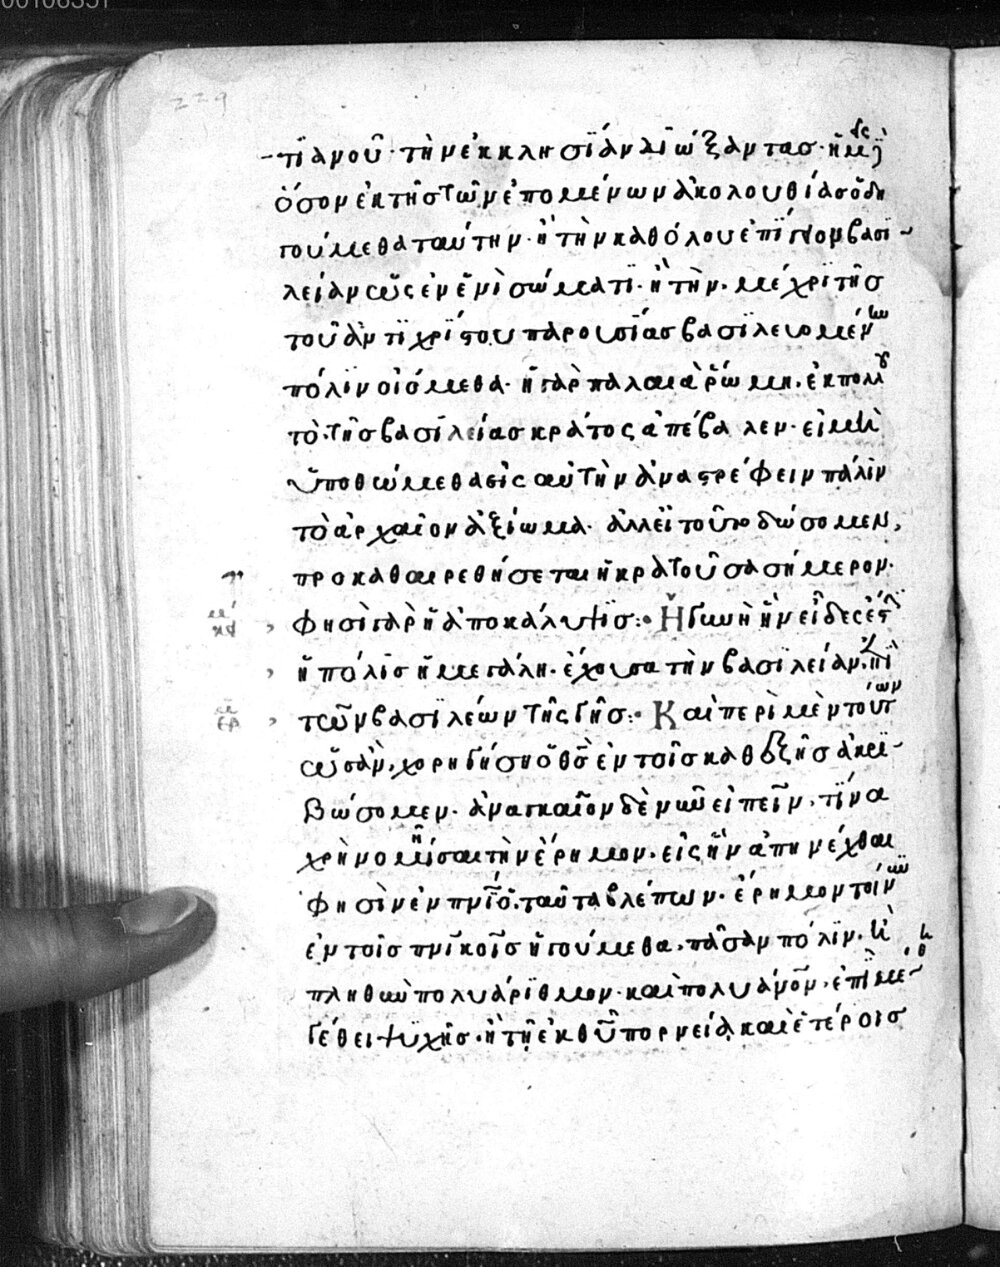 -τϊανοῦ· τὴν ἐκκλησϊάν διώξαντασ· ἡμεῖς δὲ
ὅσον ἐκ τῆς τῶν ἐπομένων ἀκολουθίασ ὁδη
γούμεθα ταύτην· ἢ τὴν καθόλου ἐπίγειον βασϊ-
λείαν ὡς ἐν ἑνὶ σώματϊ· ἢ τὴν μέχρϊ τῆσ
τοῦ ἀντϊχρίστου παρουσίασ βασϊλευομένων
πόλϊν οἰόμεθα· ἡ γὰρ παλαιὰ ῥώμη, ἐκ πολλοῦ
τὸ τῆσ βασϊλείασ κράτος ἀπέβαλεν· εἰ μὴ
ὑποθώμεθα εἰς αὐτὴν ἀναστρέφειν πάλϊν
τὸ ἀρχαῖον ἀξίωμα· ἀλλεὶ τοῦτο δώσομεν,
προκαθαιρεθήσεται ἡ κρατοῦσα σήμερον·
φησὶ γὰρ ἡ ἀποκάλυψϊσ:· Ἡ γυνὴ ἣν εἶδες ἐστὶν
ἡ πόλϊσ ἡ μεγάλη· ἔχουσα τὴν βασϊλείαν, ἐπὶ
τῶν βασϊλέων τῆς γῆσ:· Καὶ περὶ μὲν τούτων
ὡσ ἂν, χορηγήση ὁ θς̄ ἐν τοῖσ καθεξῆσ ἀκρϊ-
βώσομεν· ἀναγκαῖον δὲ νῦν εἰπεῖν, τίνα
χρὴ νομίσαι τὴν ἔρημον, εἰς ἣν ἀπηνέχθαι
φησὶν ἐν πνϊ ὁ ταῦτα βλέπων· ἔρημον τοίνυν
ἐν τοῖσ πνϊκοῖσ ἡγούμεθα, πᾶσαν πόλϊν, ἢ
πληθὺν πολυάρϊθμον· καὶ πολυάνον, ἐπὶ με-
γέθει ψυχῆσ· ἢ τῆ ἐκ θῦ πορνεία καὶ ἑτέροισ